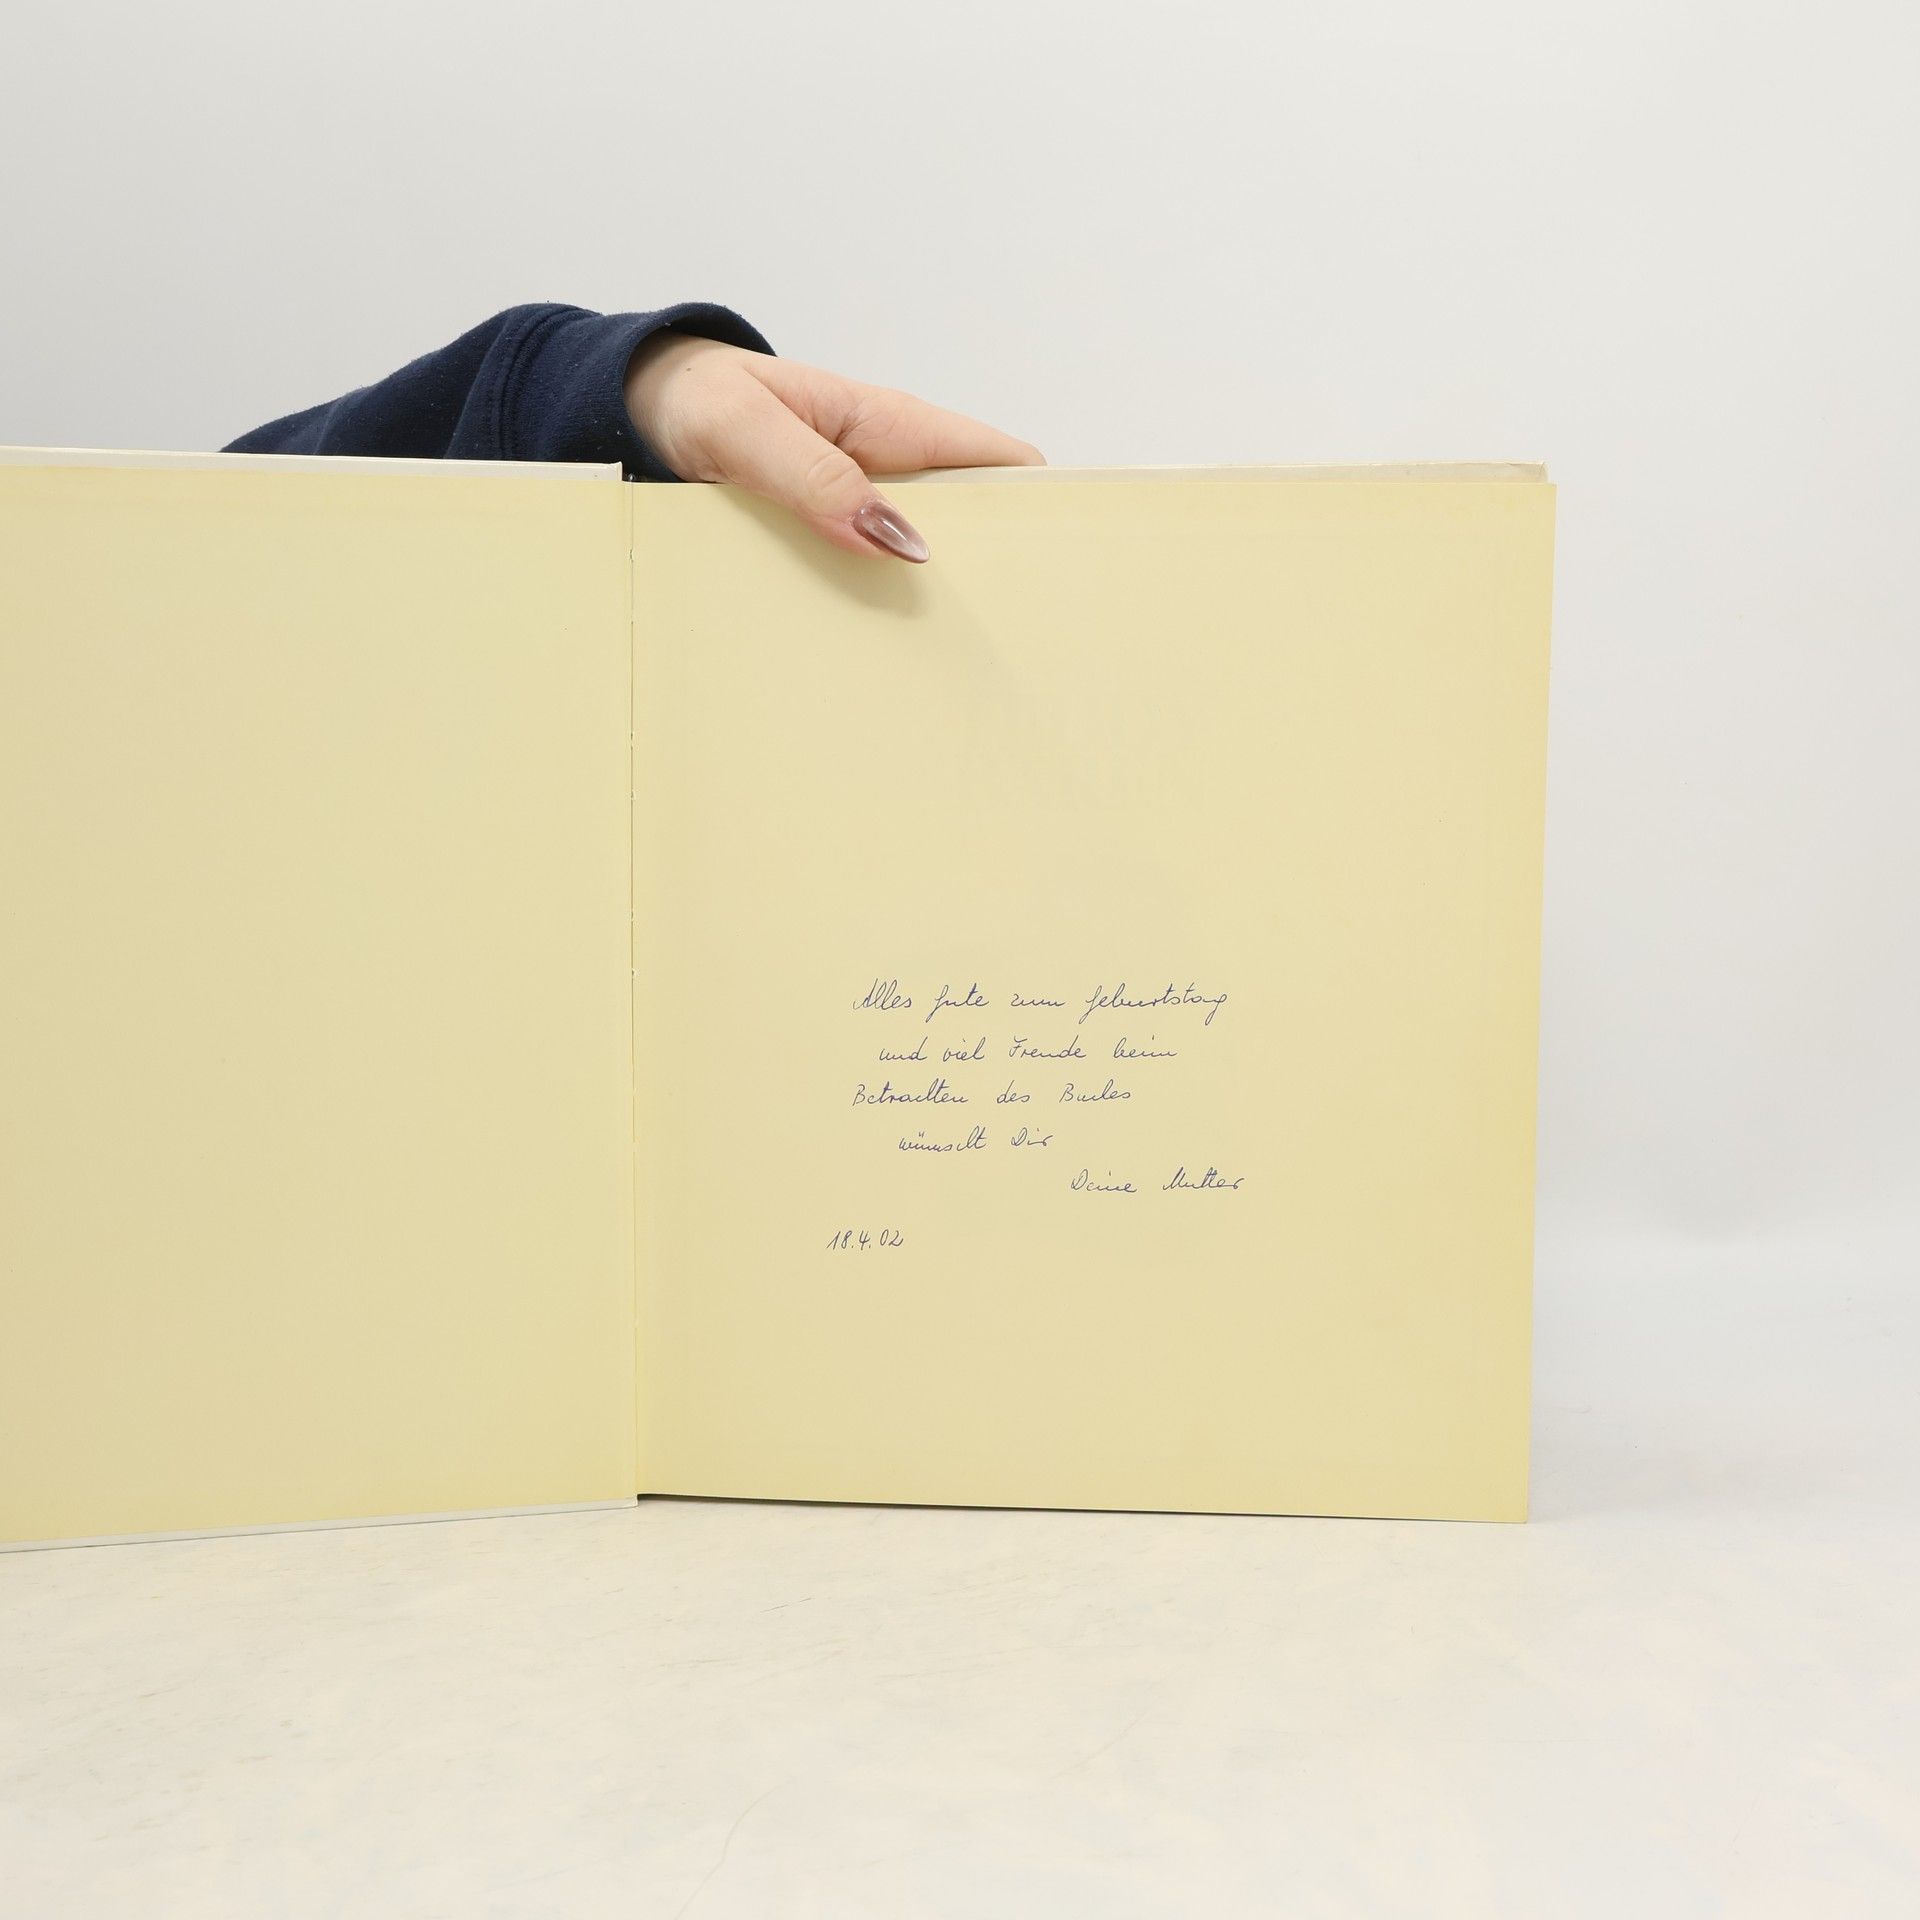 Alles Gute zum Geburtstag
und viel Freude beim
Betrachten des Buches
wünscht Dir
Deine Mutter
18.4.02